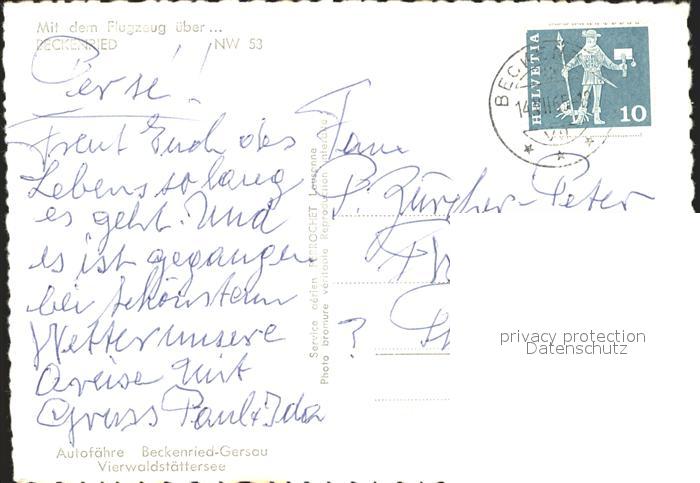 Mit dem Flugzeug über...
BECKENRIED NW 53
Freut Euch des
Lebens so lang
es geht. Und
es ist gegangen
bei schönstem
Wetter unsere
mit
Gruss Paul + Ida
Autofähre Beckenried-Gersau
Vierwaldstättersee
Service aérien PERROCHET Lausanne
Photo bromure véritable Reproduction interdite
HELVETIA
10
BECKENRIED
Fam
P. Zürcher-Peter
?
privacy protection
Datenschutz